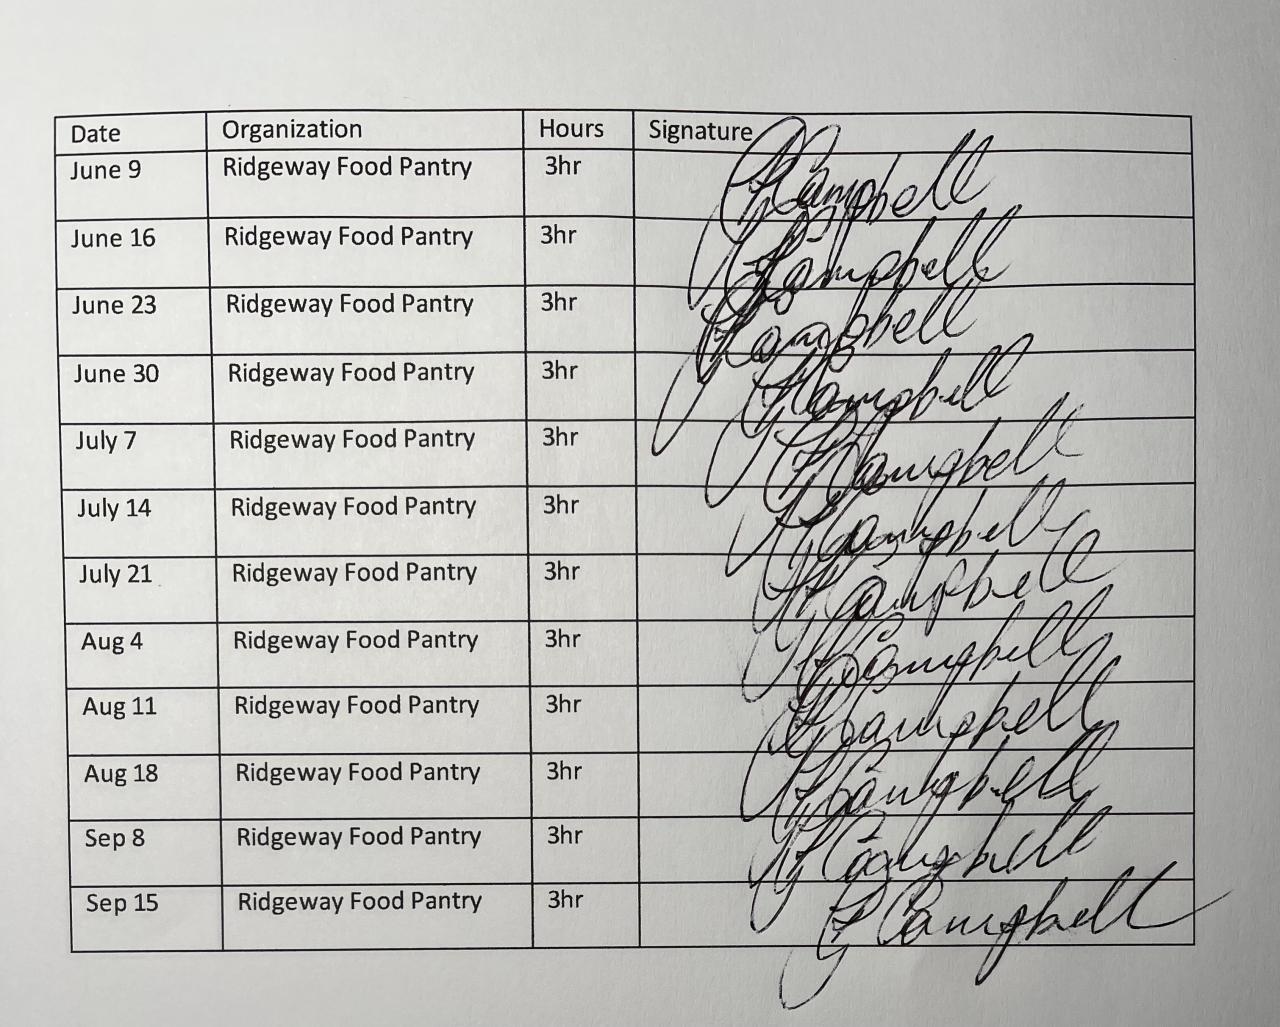 Date Organization Hours Signature
June 9 Ridgeway Food Pantry 3hr Campbell
June 16 Ridgeway Food Pantry 3hr Campbell
June 23 Ridgeway Food Pantry 3hr Campbell
June 30 Ridgeway Food Pantry 3hr Campbell
July 7 Ridgeway Food Pantry 3hr Campbell
July 14 Ridgeway Food Pantry 3hr Campbell
July 21 Ridgeway Food Pantry 3hr Campbell
Aug 4 Ridgeway Food Pantry 3hr Campbell
Aug 11 Ridgeway Food Pantry 3hr Campbell
Aug 18 Ridgeway Food Pantry 3hr Campbell
Sep 8 Ridgeway Food Pantry 3hr Campbell
Sep 15 Ridgeway Food Pantry 3hr Campbell